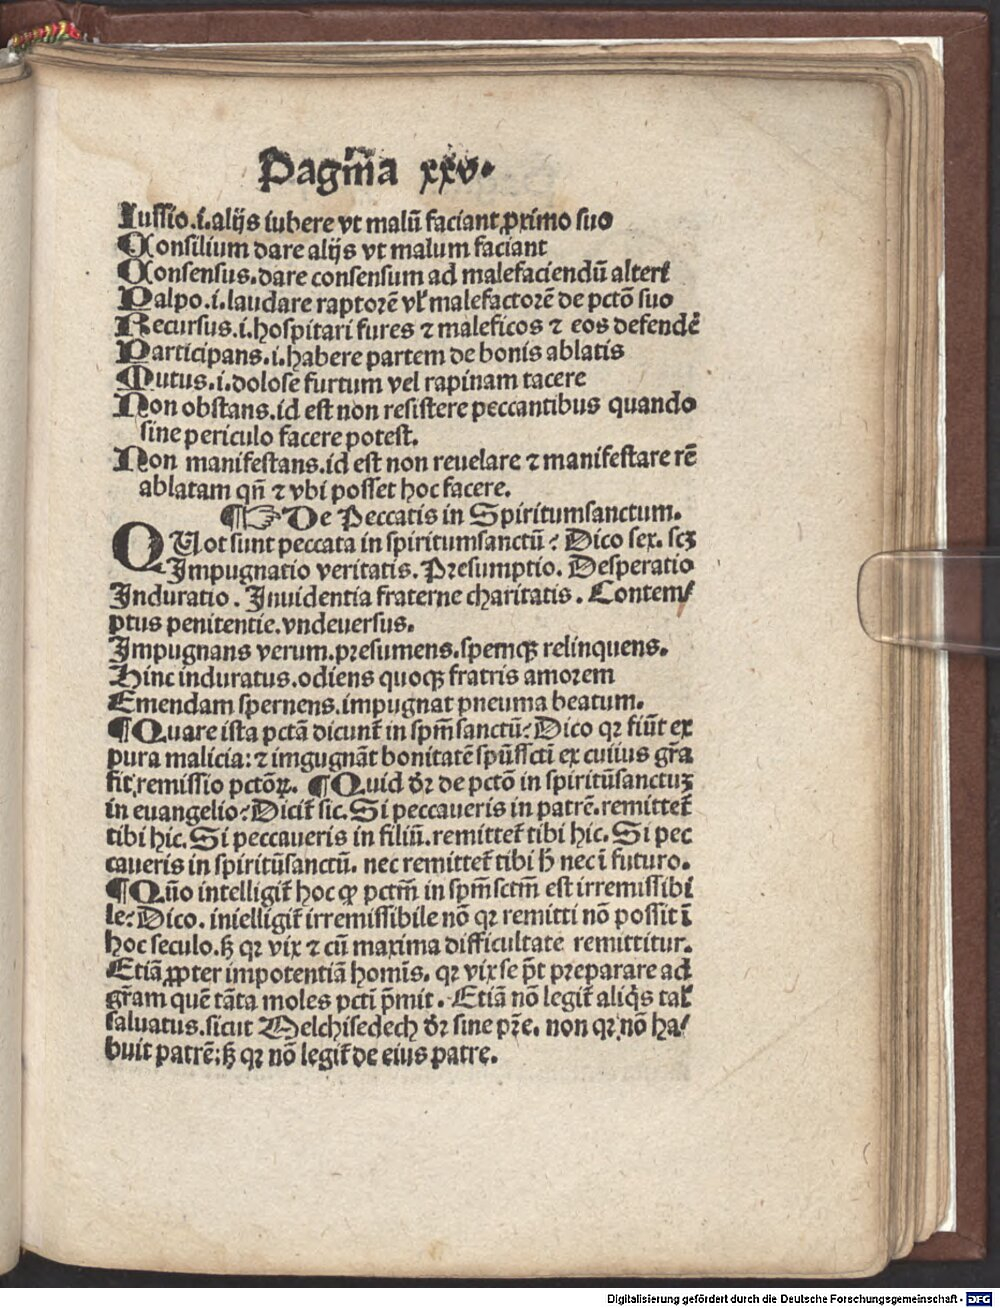 Pagīna xxv.
Iussio.i.alijs iubere vt malū faciant ꝓximo suo
Consilium dare alijs vt malum faciant
Consensus.dare consensum ad malefaciendū alteri
Palpo.i.laudare raptorē vl' malefactorē de pctō suo
Recursus.i.hospitari fures ⁊ maleficos ⁊ eos defendē
Participans.i.habere partem de bonis ablatis
Mutus.i.dolose furtum vel rapinam tacere
Non obstans.id est non resistere peccantibus quando
sine periculo facere potest.
Non manifestans.id est non reuelare ⁊ manifestare rē
ablatam qn̄ ⁊ vbi posset hoc facere.
¶☞De Peccatis in Spiritumsanctum.
QUot sunt peccata in spiritumsanctū? Dico sex. scꝫ
Impugnatio veritatis. Presumptio. Desperatio
Induratio. Inuidentia fraterne charitatis. Contem/
ptus penitentie.vndeuersus.
Impugnans verum.presumens.spemqꝫ relinquens.
Hinc induratus.odiens quoqꝫ fratris amorem
Emendam spernens.impugnat pneuma beatum.
¶Quare ista pctā dicunt̄ in spm̄sanctū? Dico qꝛ fiūt ex
pura malicia: ⁊ imgugnāt bonitatē spūssctī ex cuiius gr̄a
fit,remissio pctōꝝ. ¶Quid dr̄ de pctō in spiritūsanctuꝫ
in euangelio? Dicit̄ sic. Si peccaueris in patrē.remittet̄
tibi hic. Si peccaueris in filiū.remittet̄ tibi hic. Si pec
caueris in spiritūsanctū. nec remittet̄ tibi h̄ nec ī futuro.
¶Qūo intelligit̄ hoc ꝙ pctm̄ in spm̄sctm̄ est irremissibi
le? Dico. inielligit̄ irremissibile nō qꝛ remitti nō possit ī
hoc seculo.sꝫ qꝛ vix ⁊ cū maxima difficultate remittitur.
Etiā ꝓpter impotentiā homīs. qꝛ vix se pn̄t preparare ad
gr̄am quē tāta moles pctī p̄mit. Etiā nō legit̄ aliq̄s tal'
saluatus.sicut Melchisedech dr̄ sine pr̄e. non qꝛ nō ha/
buit patrē: sꝫ qꝛ nō legit̄ de eius patre.
Digitalisierung gefördert durch die Deutsche Forschungsgemeinschaft - DFG